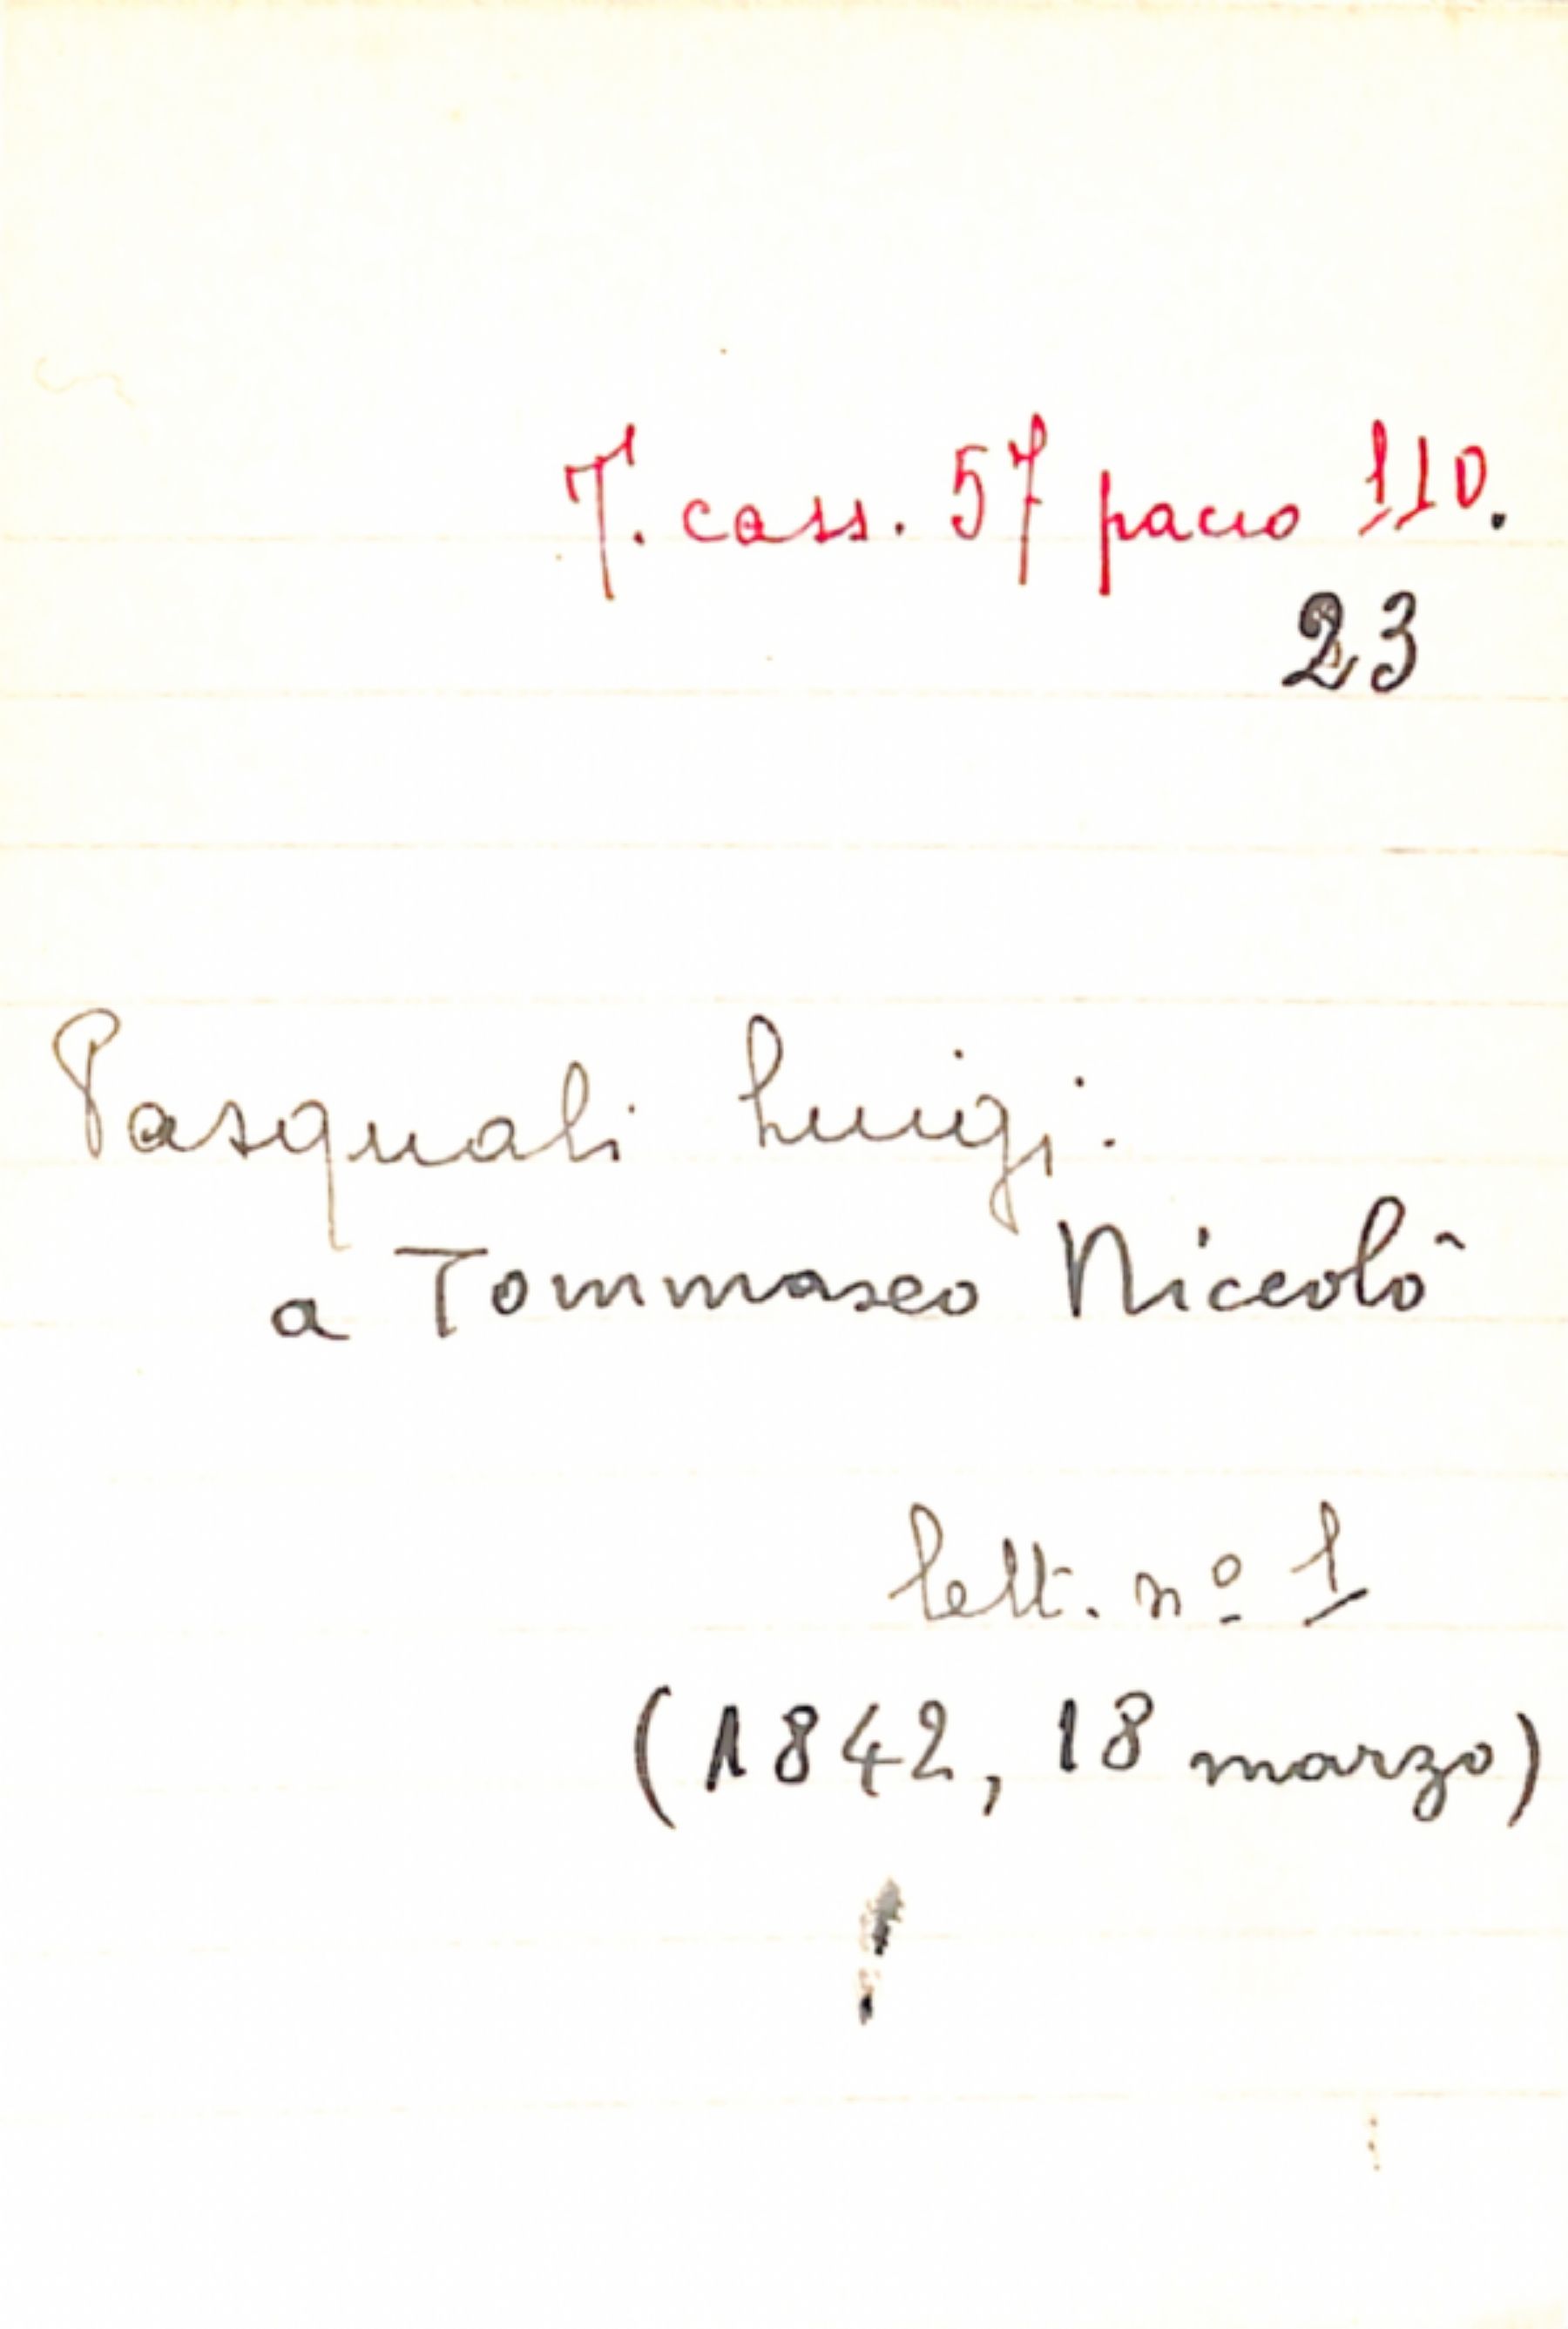 T. cass. 57 pacco 110.
23
Pasquali Luigi.
a Tommaseo Niccolò
lett. nº 1
(1842, 18 marzo)